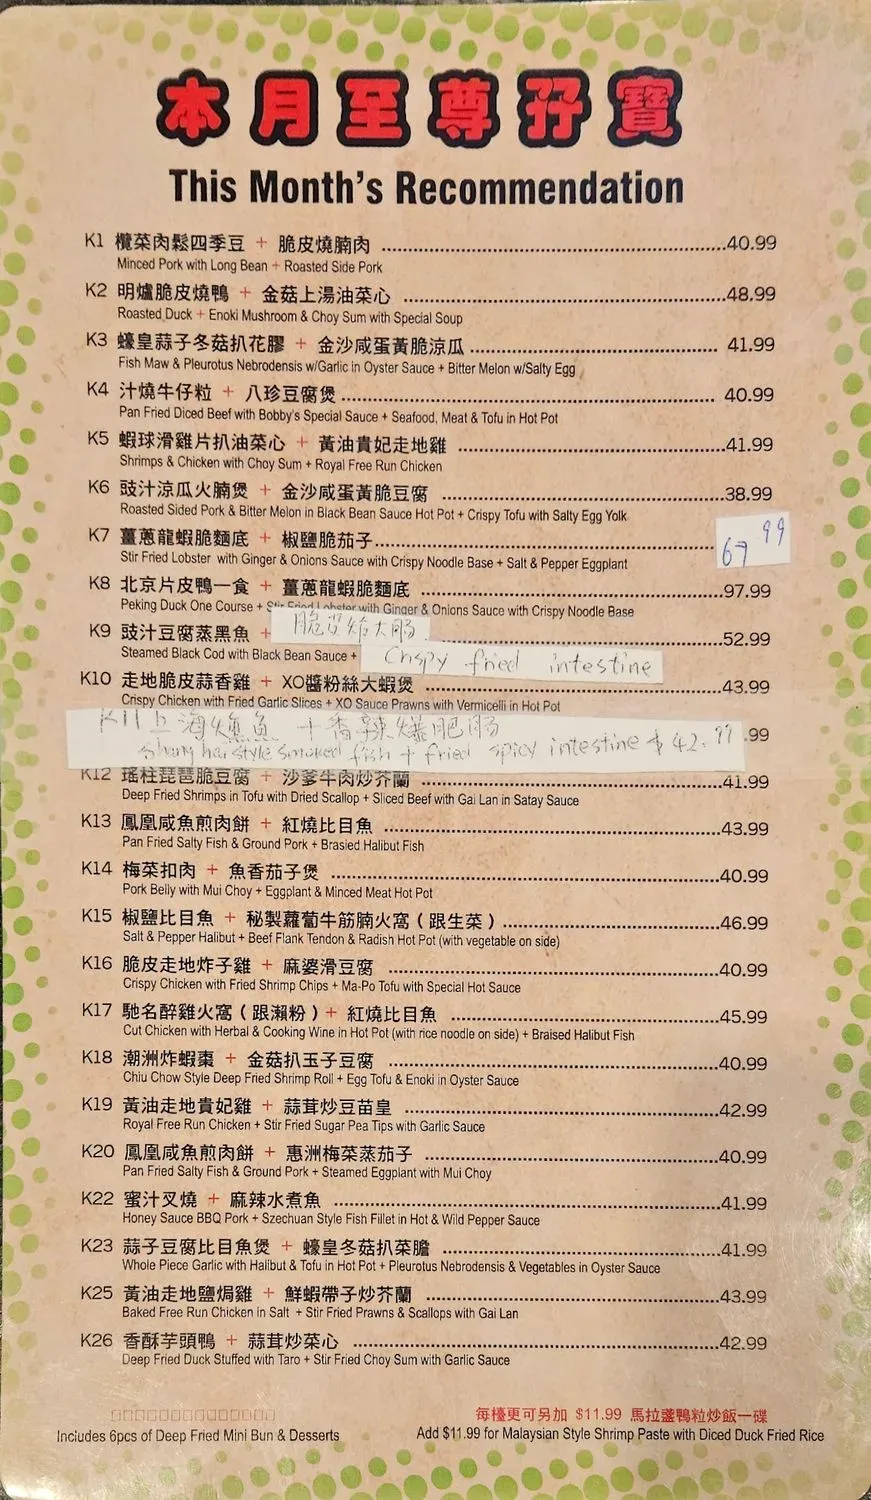 本月至尊孖寶
This Month's Recommendation
K1 欖菜肉鬆四季豆 + 脆皮燒腩肉 ...40.99
Minced Pork with Long Bean + Roasted Side Pork
K2 明爐脆皮燒鴨 + 金菇上湯油菜心 ...48.99
Roasted Duck + Enoki Mushroom & Choy Sum with Special Soup
K3 蠔皇蒜子冬菇扒花膠 + 金沙咸蛋黃脆涼瓜 ... 41.99
Fish Maw & Pleurotus Nebrodensis w/Garlic in Oyster Sauce + Bitter Melon w/Salty Egg
K4 汁燒牛仔粒 + 八珍豆腐煲 ... 40.99
Pan Fried Diced Beef with Bobby's Special Sauce + Seafood, Meat & Tofu in Hot Pot
K5 蝦球滑雞片扒油菜心 + 黃油貴妃走地雞 ...41.99
Shrimps & Chicken with Choy Sum + Royal Free Run Chicken
K6 豉汁涼瓜火腩煲 + 金沙咸蛋黃脆豆腐 ...38.99
Roasted Sided Pork & Bitter Melon in Black Bean Sauce Hot Pot + Crispy Tofu with Salty Egg Yolk
K7 薑蔥龍蝦脆麵底 + 椒鹽脆茄子 ... 67 99
Stir Fried Lobster with Ginger & Onions Sauce with Crispy Noodle Base + Salt & Pepper Eggplant
K8 北京片皮鴨一食 + 薑蔥龍蝦脆麵底 ...97.99
Peking Duck One Course + Stir Fried Lobster with Ginger & Onions Sauce with Crispy Noodle Base
K9 豉汁豆腐蒸黑魚 + 脆皮炸大腸 ...52.99
Steamed Black Cod with Black Bean Sauce + Crispy fried intestine
K10 走地脆皮蒜香雞 + XO醬粉絲大蝦煲 ...43.99
Crispy Chicken with Fried Garlic Slices + XO Sauce Prawns with Vermicelli in Hot Pot
K11 上海燻魚 + 香辣爆肥腸 .99
Shanghai style smoked fish + fried spicy intestine $42.99
K12 瑤柱琵琶脆豆腐 + 沙爹牛肉炒芥蘭 ...41.99
Deep Fried Shrimps in Tofu with Dried Scallop + Sliced Beef with Gai Lan in Satay Sauce
K13 鳳凰咸魚煎肉餅 + 紅燒比目魚 ...43.99
Pan Fried Salty Fish & Ground Pork + Brasied Halibut Fish
K14 梅菜扣肉 + 魚香茄子煲 ...40.99
Pork Belly with Mui Choy + Eggplant & Minced Meat Hot Pot
K15 椒鹽比目魚 + 秘製蘿蔔牛筋腩火窩（跟生菜）...46.99
Salt & Pepper Halibut + Beef Flank Tendon & Radish Hot Pot (with vegetable on side)
K16 脆皮走地炸子雞 + 麻婆滑豆腐 ...40.99
Crispy Chicken with Fried Shrimp Chips + Ma-Po Tofu with Special Hot Sauce
K17 馳名醉雞火窩（跟瀨粉）+ 紅燒比目魚 ...45.99
Cut Chicken with Herbal & Cooking Wine in Hot Pot (with rice noodle on side) + Braised Halibut Fish
K18 潮洲炸蝦棗 + 金菇扒玉子豆腐 ...40.99
Chiu Chow Style Deep Fried Shrimp Roll + Egg Tofu & Enoki in Oyster Sauce
K19 黃油走地貴妃雞 + 蒜茸炒豆苗皇 ...42.99
Royal Free Run Chicken + Stir Fried Sugar Pea Tips with Garlic Sauce
K20 鳳凰咸魚煎肉餅 + 惠洲梅菜蒸茄子 ...40.99
Pan Fried Salty Fish & Ground Pork + Steamed Eggplant with Mui Choy
K22 蜜汁叉燒 + 麻辣水煮魚 ...41.99
Honey Sauce BBQ Pork + Szechuan Style Fish Fillet in Hot & Wild Pepper Sauce
K23 蒜子豆腐比目魚煲 + 蠔皇冬菇扒菜膽 ...41.99
Whole Piece Garlic with Halibut & Tofu in Hot Pot + Pleurotus Nebrodensis & Vegetables in Oyster Sauce
K25 黃油走地鹽焗雞 + 鮮蝦帶子炒芥蘭 ...43.99
Baked Free Run Chicken in Salt + Stir Fried Prawns & Scallops with Gai Lan
K26 香酥芋頭鴨 + 蒜茸炒菜心 ...42.99
Deep Fried Duck Stuffed with Taro + Stir Fried Choy Sum with Garlic Sauce
每檯更可另加 $11.99 馬拉盞鴨粒炒飯一碟
Includes 6pcs of Deep Fried Mini Bun & Desserts
Add $11.99 for Malaysian Style Shrimp Paste with Diced Duck Fried Rice